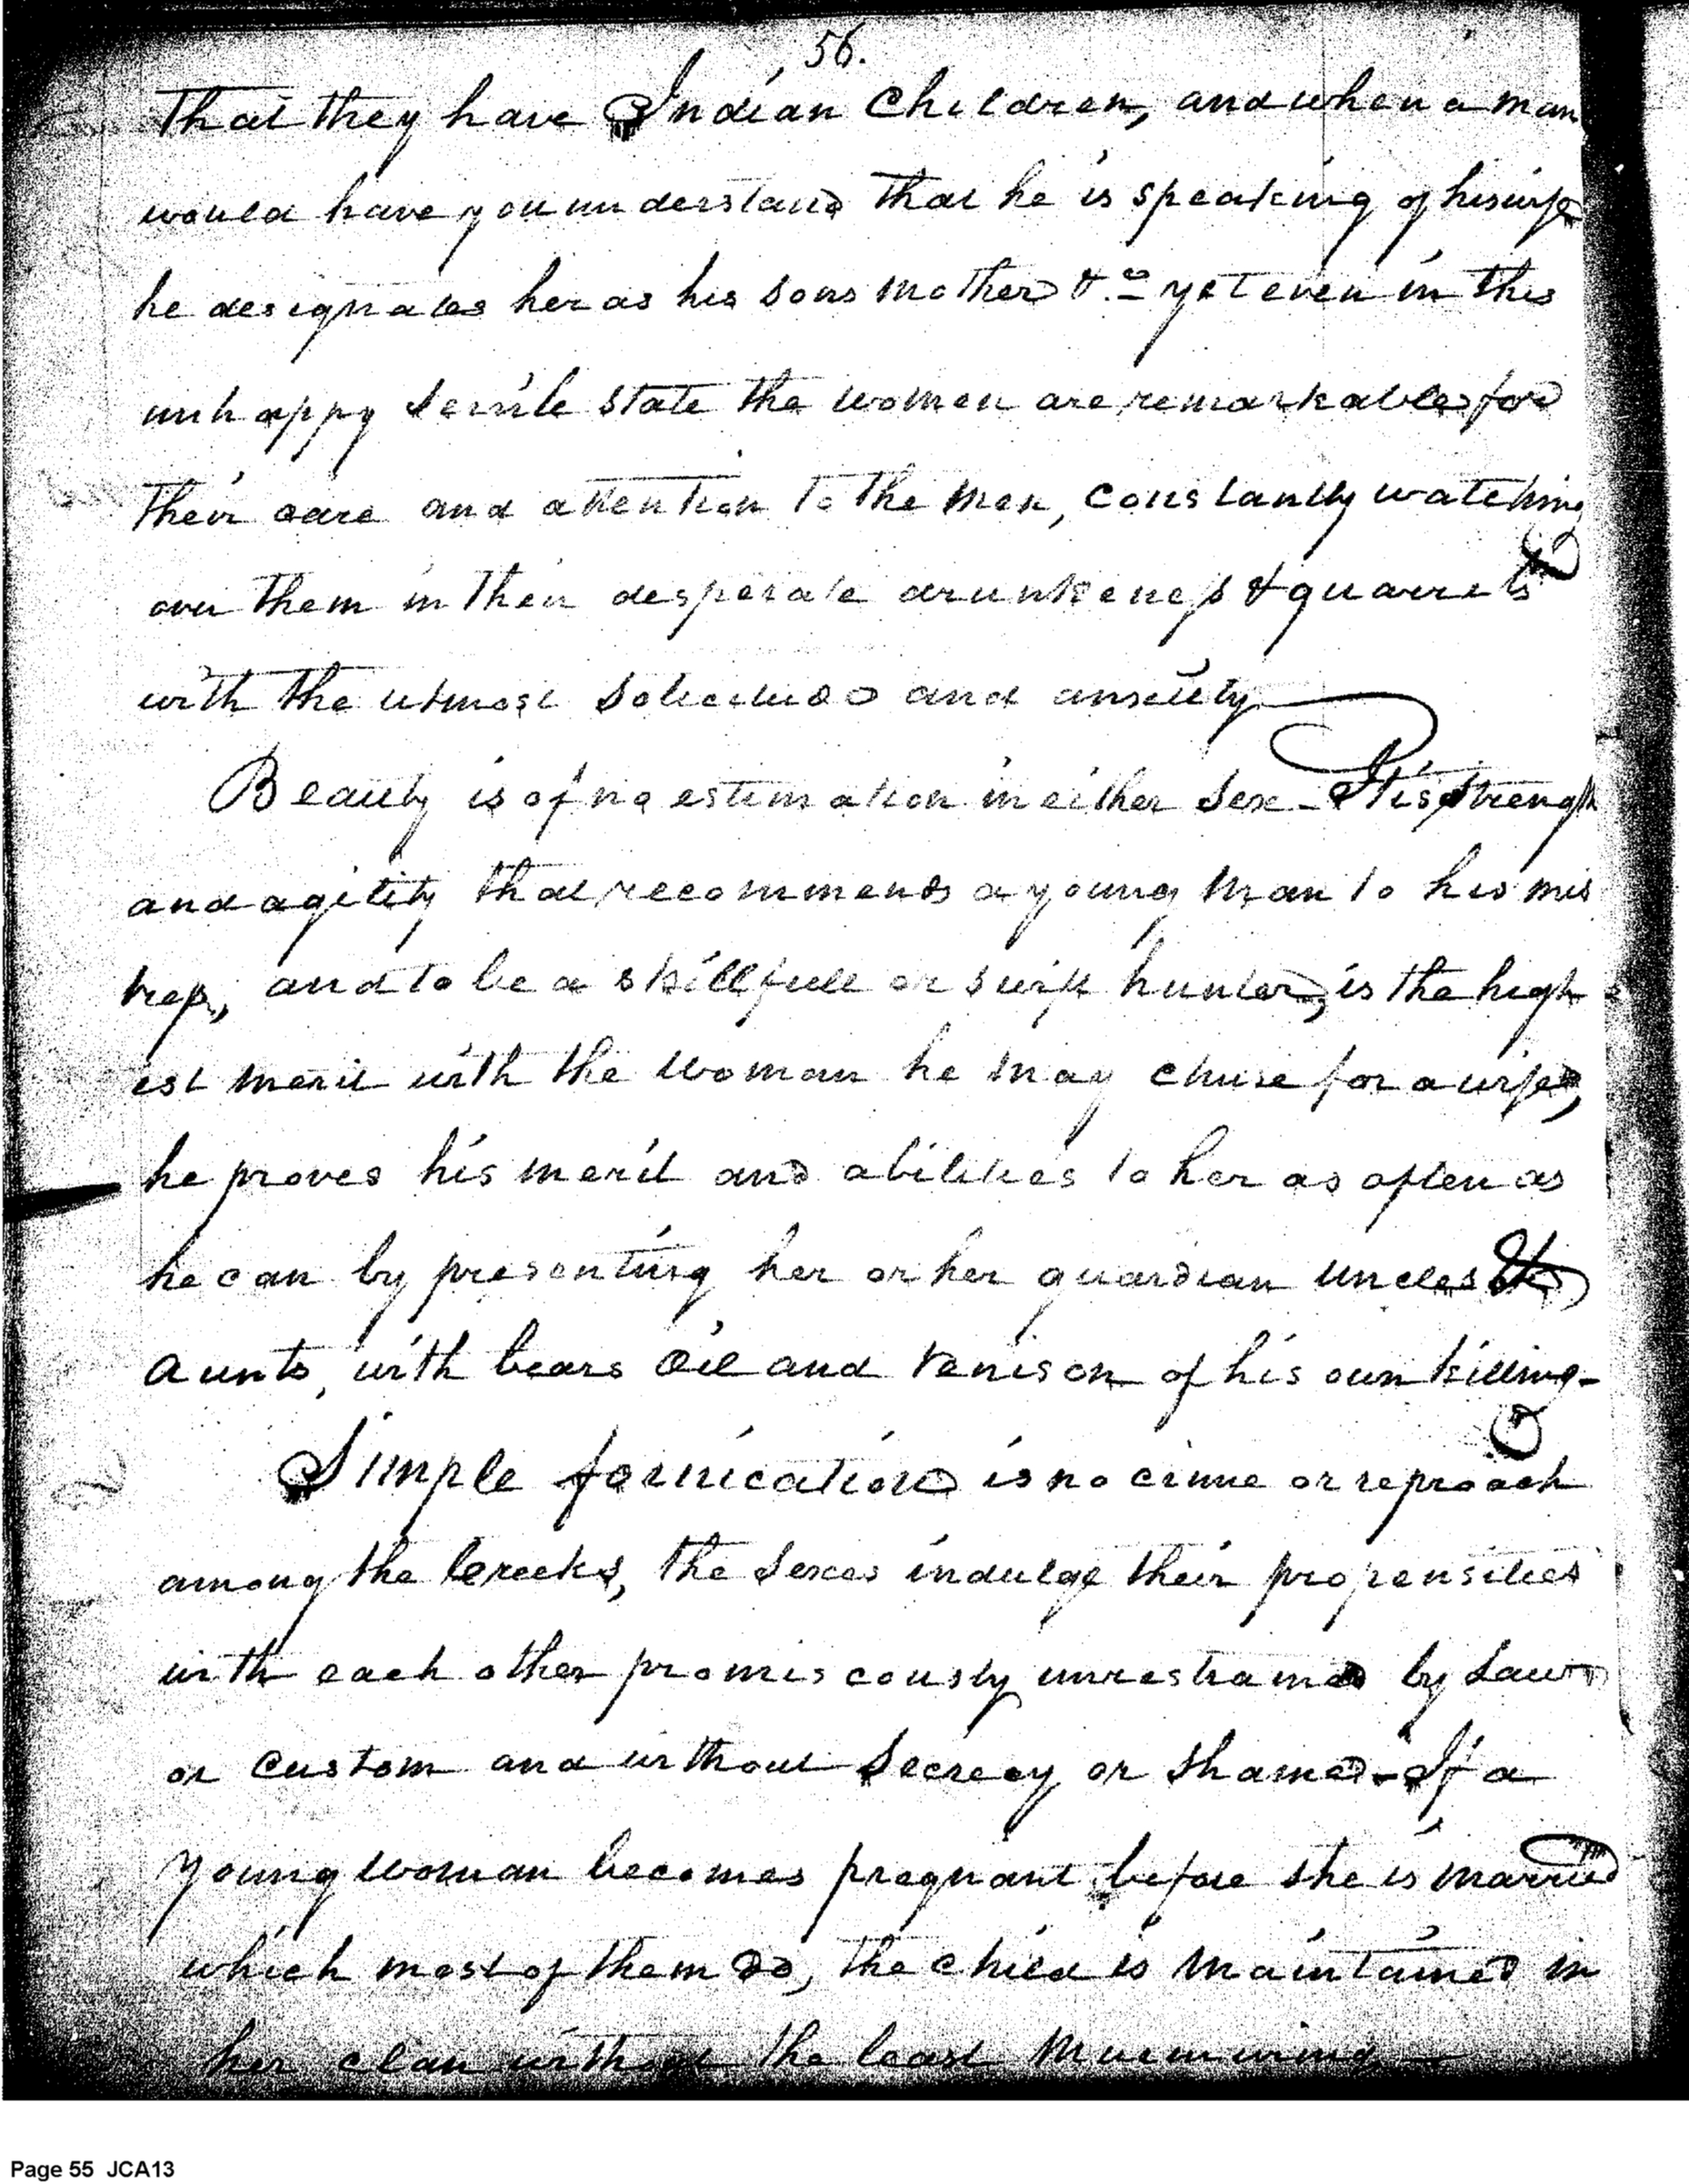 56.
That they have Indian Children, and when a man
would have you understand that he is speaking of his wife
he designates her as his sons mother &c yet even in this
unhappy servile state the women are remarkable for
their care and attention to the men, constantly watching
over them in their desperate drunkeness & quarrels
with the utmost solicitude and anxiety
Beauty is of no estimation in either sex - It is strength
and agility that recommends a young man to his mis
tress, and to be a skillfull or swift hunter, is the high
est merit with the woman he may chuse for a wife,
he proves his merit and abilities to her as often as
he can by presenting her or her guardian uncles &
aunts, with bears oil and venison of his own killing -
Simple fornication is no crime or reproach
among the Creeks, the sexes indulge their propensities
with each other promiscously unrestrained by Law
or custom and without secrecy or shame - If a
young woman becomes pregnant before she is married
which most of them do, the child is maintained in
her clan without the least murmuring
Page 55 JCA13